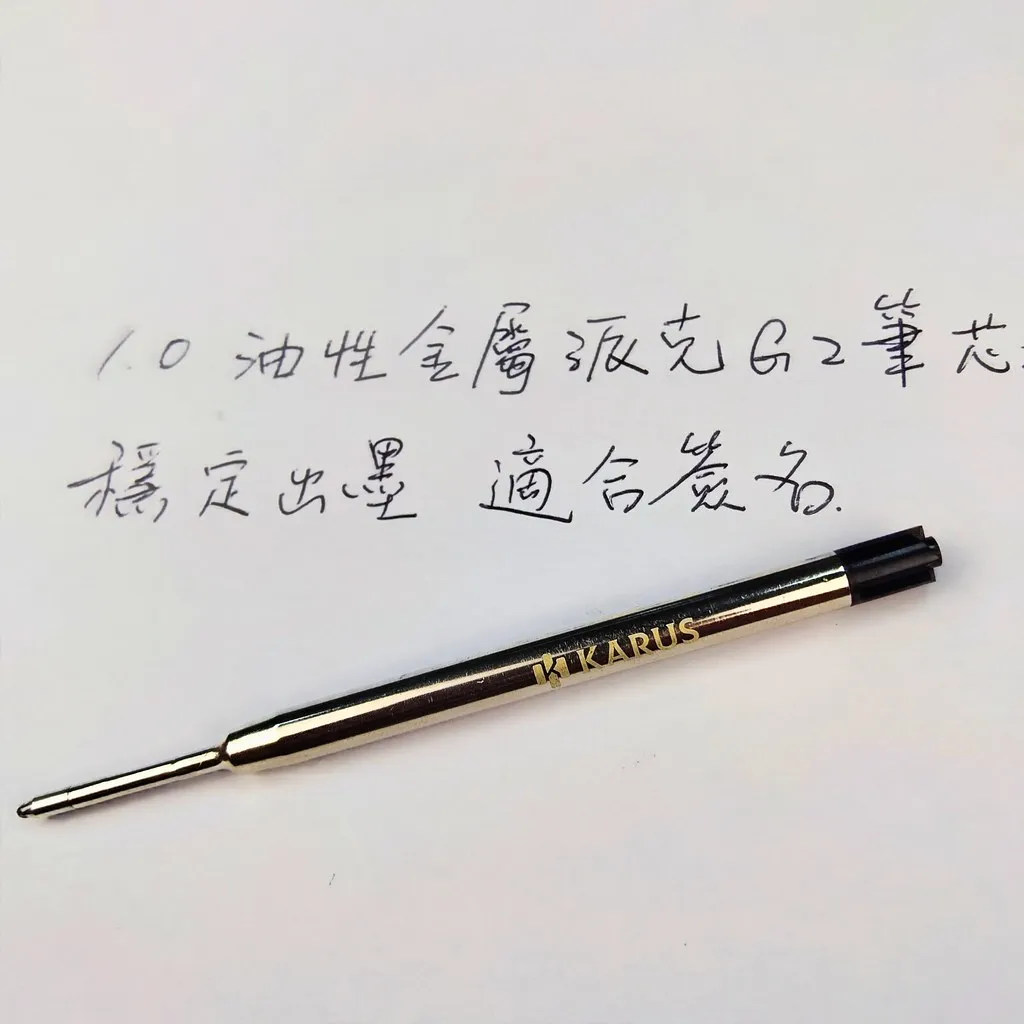 1.0 油性金屬派克G2筆芯
穩定出墨 適合簽名.
KARUS